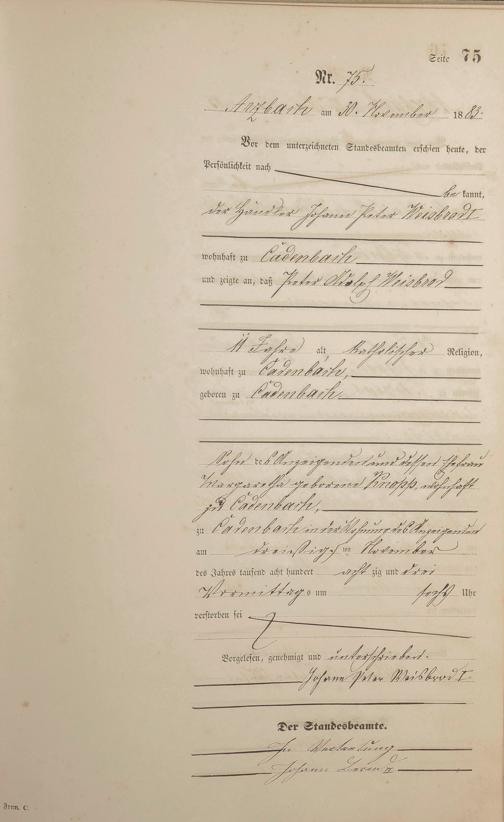 Seite 75
Nr. 75.
Arzbach am 30. November 1883.
Vor dem unterzeichneten Standesbeamten erschien heute, der
Persönlichkeit nach
be kannt,
der Händler Johann Peter Weisbrod I.
wohnhaft zu Cadenbach
und zeigte an, daß Peter Adolph Weisbrod
11 Jahre alt, katholischer Religion,
wohnhaft zu Cadenbach,
geboren zu Cadenbach
Sohn des Anzeigenden und dessen Ehefrau
Margaretha geborene Knopp, wohnhaft
zu Cadenbach,
zu Cadenbach in der Wohnung des Anzeigenden
am dreißigsten November
des Jahres tausend acht hundert acht zig und drei
Vormittags um sechs Uhr
verstorben sei
Vorgelesen, genehmigt und unterschrieben.
Johann Peter Weisbrod I.
Der Standesbeamte.
In Vertretung
Johann
Form. C.